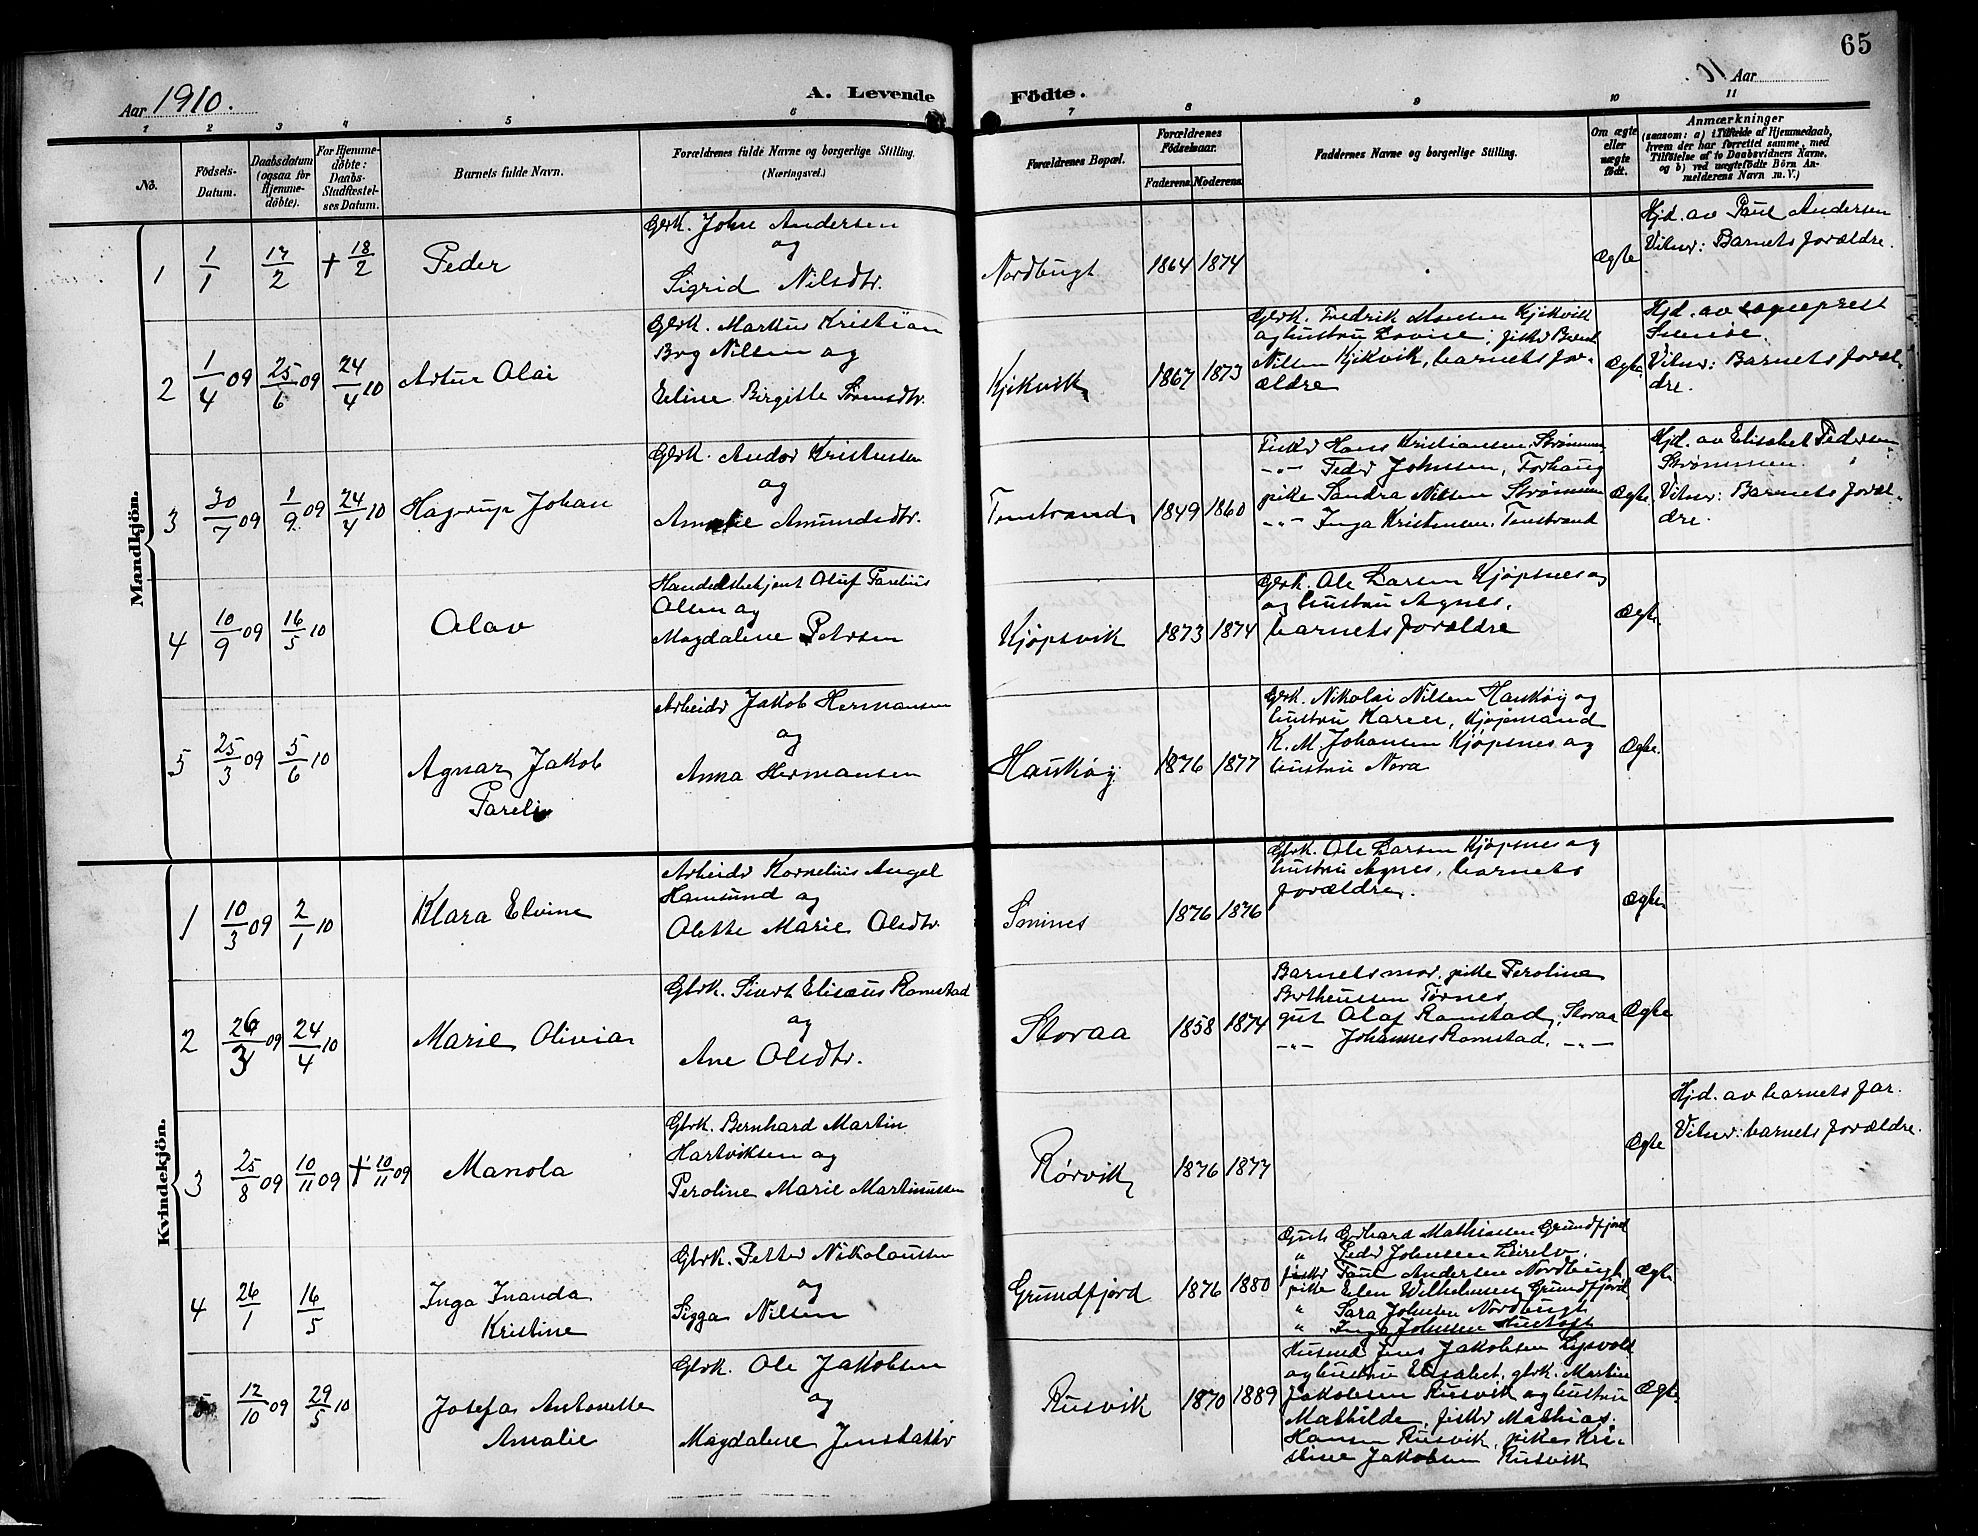 65
Aar 1910.
A. Levende
Födte.
Aar
1 2 3 4 5 6 7 8 9 10 11
No.
Födsels-
Datum.
Daabsdatum
(ogsaa for
Hjemme-
döbte).
For Hjemme-
döbte:
Daabs-
Stadfæstel-
ses Datum.
Barnets fulde Navn.
Forældrenes fulde Navne og borgerlige Stilling.
(Næringsvei.)
Forældrenes Bopæl.
Forældrenes
Födselsaar.
Faderens. Moderens.
Faddernes Navne og borgerlige Stilling.
Om ægte
eller
uægte
født.
Anmærkninger
(saasom: a) i Tilfælde af Hjemmedaab,
hvem der har forrettet samme, med
Tilföielse af to Daabsvidners Navne,
og b) ved uægtefödte Börn An-
melderens Navn m. V.)
Mandkjön.
1
1/1
17/2
+ 18/2
Peder
Gbrk. John Andersen
og
Sigrid Nilsdtr.
Nordbugt
1864 1874
Ægte
Hjd. av Paul Andersen
Vitner: Barnets forældre.
2
1/4 09
25/6 09
24/4 10
Artur Olai
Gbrk. Markus Kristian
Brg Nilsen og
Eline Birgitte Sørensdtr.
Kjikvik
1867 1873
Gbrk. Fredrik Monsen Kjikvik
og hustru Lovise, fisker Bernt
Nilsen Kjikvik, barnets for-
ældre
Ægte.
Hjd. av sogneprest
Vitner: Barnets foræl-
dre.
3
30/7 09
1/9 09
24/4 10
Hagerup Johan
Gbrk. Andor Kristensen
og
Amalie Amundsdtr.
Tenstrand
1849 1860
Fisker Hans Kristiansen, Strømmen
-"- Peder Johnsen, Forhaug
pike Sandra Nilsen Strømmen
-"- Inga Kristensen, Tenstrand
Ægte.
Hjd. av Elisabet Pedersen
Strømmen.
Vitner: Barnets foræl-
dre.
4
10/9 09
16/5 10
Olav
Handelsbetjent Oluf Parelius
Olsen og
Magdalene Petersen
Kjøpsvik
1873 1874
Gbrk. Ole Larsen Kjøpsnes og
og hustru Agnes,
barnets forældre
Ægte.
5
25/3 09
5/6 10
Agnar Jakob
Pareli
Arbeider Jakob Hermansen
og
Anna Hermansen
Haukøy
1876 1877
Gbrk. Nikolai Nilsen Haukøy og
hustru Karen, Kjøpmand
K. M Johansen Kjøpsnes og
hustru Nora
Ægte.
Kvindekjön.
1
10/3 09
2/1 10
Klara Elvine
Arbeider Kornelius Angel
Hamsund og
Olette Marie Olsdtr.
1876 1876
Gbrk. Ole Larsen Kjøpsnes og
hustru Agnes, barnets
forældre.
Ægte.
2
26/3 09
24/4 10
Marie Olivia
Gbrk. Sivert Elisæus Romstad
og
Ane Olsdtr.
Storaa
1858 1874
Barnets mor, pike Peroline
Bertheussen Tørnes,
gut Olaf Romstad, Storaa
-"- Johannes Romstad, -"-
Ægte
3
25/8 09
10/11 09
+ 10/11 09
Manola
Gbrk. Bernhard Martin
Hartviksen og
Peroline Marie Martinussen
Rørvik
1876 1877
Ægte
Hjd. av barnets far.
Vitner: barnets forældre.
4
26/1
16/5
Inga Inanda
Kristine
Gbrk. Petter Nikolaussen
og
Sigga Nilsen
Grundfjord
1876 1880
Gut Gerhard Mathiassen Grundfjord
" Peder Johnsen Leirelv.
fisker Paul Andersen Nordbugt
pike Elen Wilhelmsen, Grundfjord
" Sara Johnsen Nordbugt
" Inga Johnsen
Ægte
5
12/10 09
29/5 10
Josefa Antonette
Amalie
Gbrk. Ole Jakobsen
og
Magdalene Jensdatter
Rusvik
1870 1889
Husmd. Jens Jakobsen Lysvold
og hustru Elisabet, gbrk. Martin
Jakobsen Rusvik og hustru
Mathilde, fisker Mathias
Hansen Rusvik, pike Kri-
stine Jakobsen Rusvik
Ægte.